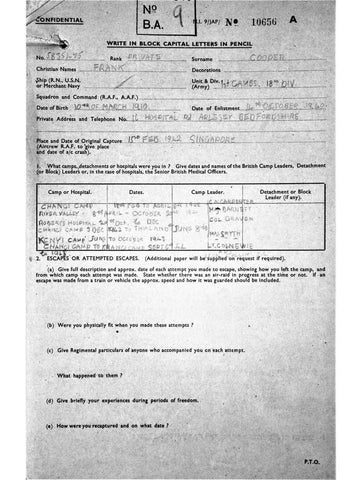 CONFIDENTIAL
Nº
B.A. 9
M.I. 9/JAP/ Nº 10656 A
WRITE IN BLOCK CAPITAL LETTERS IN PENCIL
No. 5833645 Rank PRIVATE Surname COOPER
Christian Names FRANK Decorations
Ship (R.N., U.S.N. or Merchant Navy Unit & Div. (Army) CAMBS. 18TH DIV
Squadron and Command (R.A.F., A.A.F.)
Date of Birth 10TH OF MARCH 1919. Date of Enlistment OCTOBER 1940
Private Address and Telephone No. 16 HOSPITAL RD ARLESEY BEDFORDSHIRE.
Place and Date of Original Capture 15TH FEB 1942 SINGAPORE
(Aircrew R.A.F. to give place
and date of a/c crash).
1. What camps, detachments or hospitals were you in? Give dates and names of the British Camp Leaders, Detachment
(or Block) Leaders or, in the case of hospitals, the Senior British Medical Officers.
Camp or Hospital. Dates. Camp Leader. Detachment or Block Leader (if any).
CHANGI CAMP FEB TO APRIL 1942 CARPENTER
RIVER VALLEY 8TH APRIL - OCTOBER 1942
ROBERTS HOSPITAL OCT. TO DEC
CHANGI CAMP DEC TO THAILAND JUNE
CAMP JUNE TO OCTOBER 1943
CHANGI CAMP TO KRANJI CAMP SEPT
2. ESCAPES OR ATTEMPTED ESCAPES. (Additional paper will be supplied on request if required).
(a) Give full description and approx. date of each attempt you made to escape, showing how you left the camp, and
from which camp each attempt was made. State whether there was an air-raid in progress at the time or not. If an
escape was made from a train or vehicle the approx. speed and how it was guarded should be included.
(b) Were you physically fit when you made these attempts?
(c) Give Regimental particulars of anyone who accompanied you on each attempt.
What happened to them?
(d) Give briefly your experiences during periods of freedom.
(e) How were you recaptured and on what date?
P.T.O.